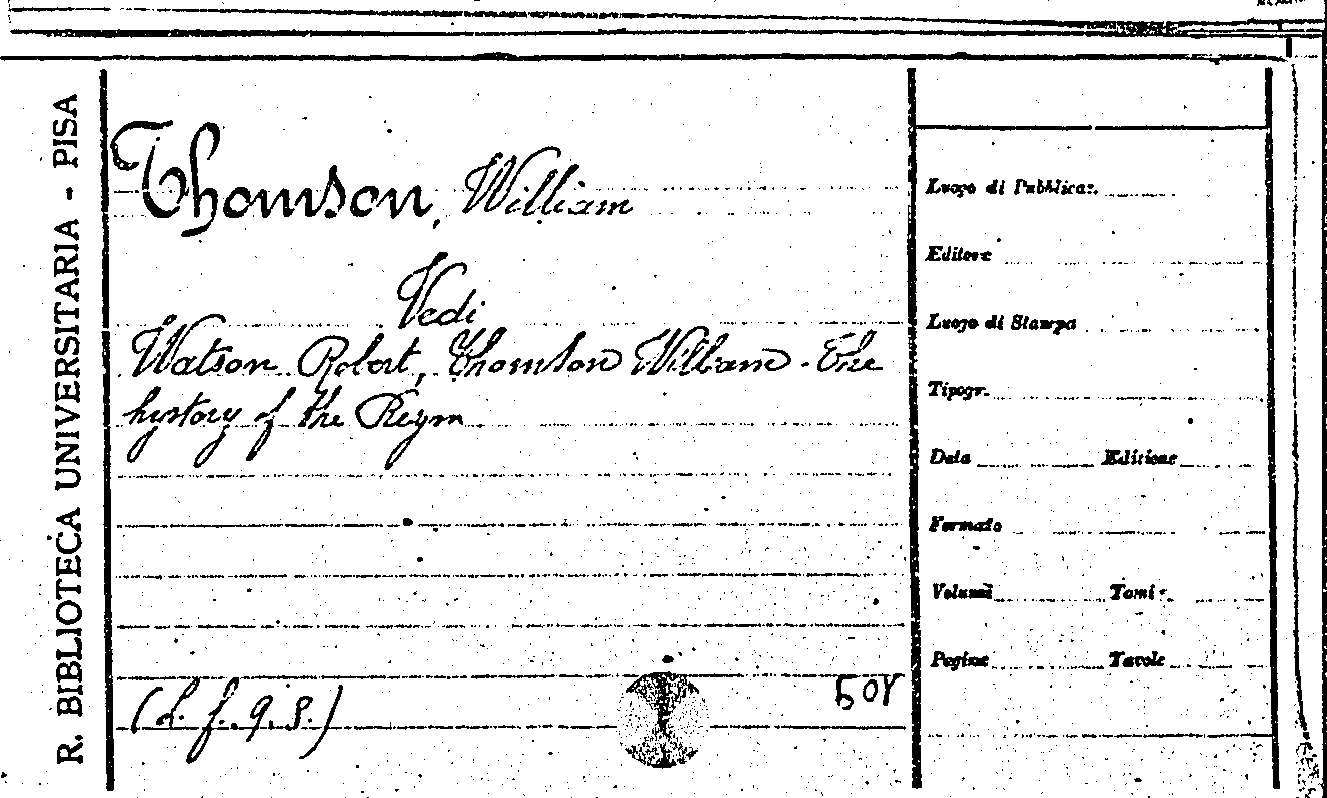 R. BIBLIOTECA UNIVERSITARIA - PISA
Thomson, William
Vedi
Watson Robert, Thomson William - The
hystory of the Reygn
(d. f. 9. 5.)
508
Luogo di Pubblicaz.
Editore
Luogo di Stampa
Tipogr.
Data Edizione
Formato
Volumi Tomi
Pagine Tavole